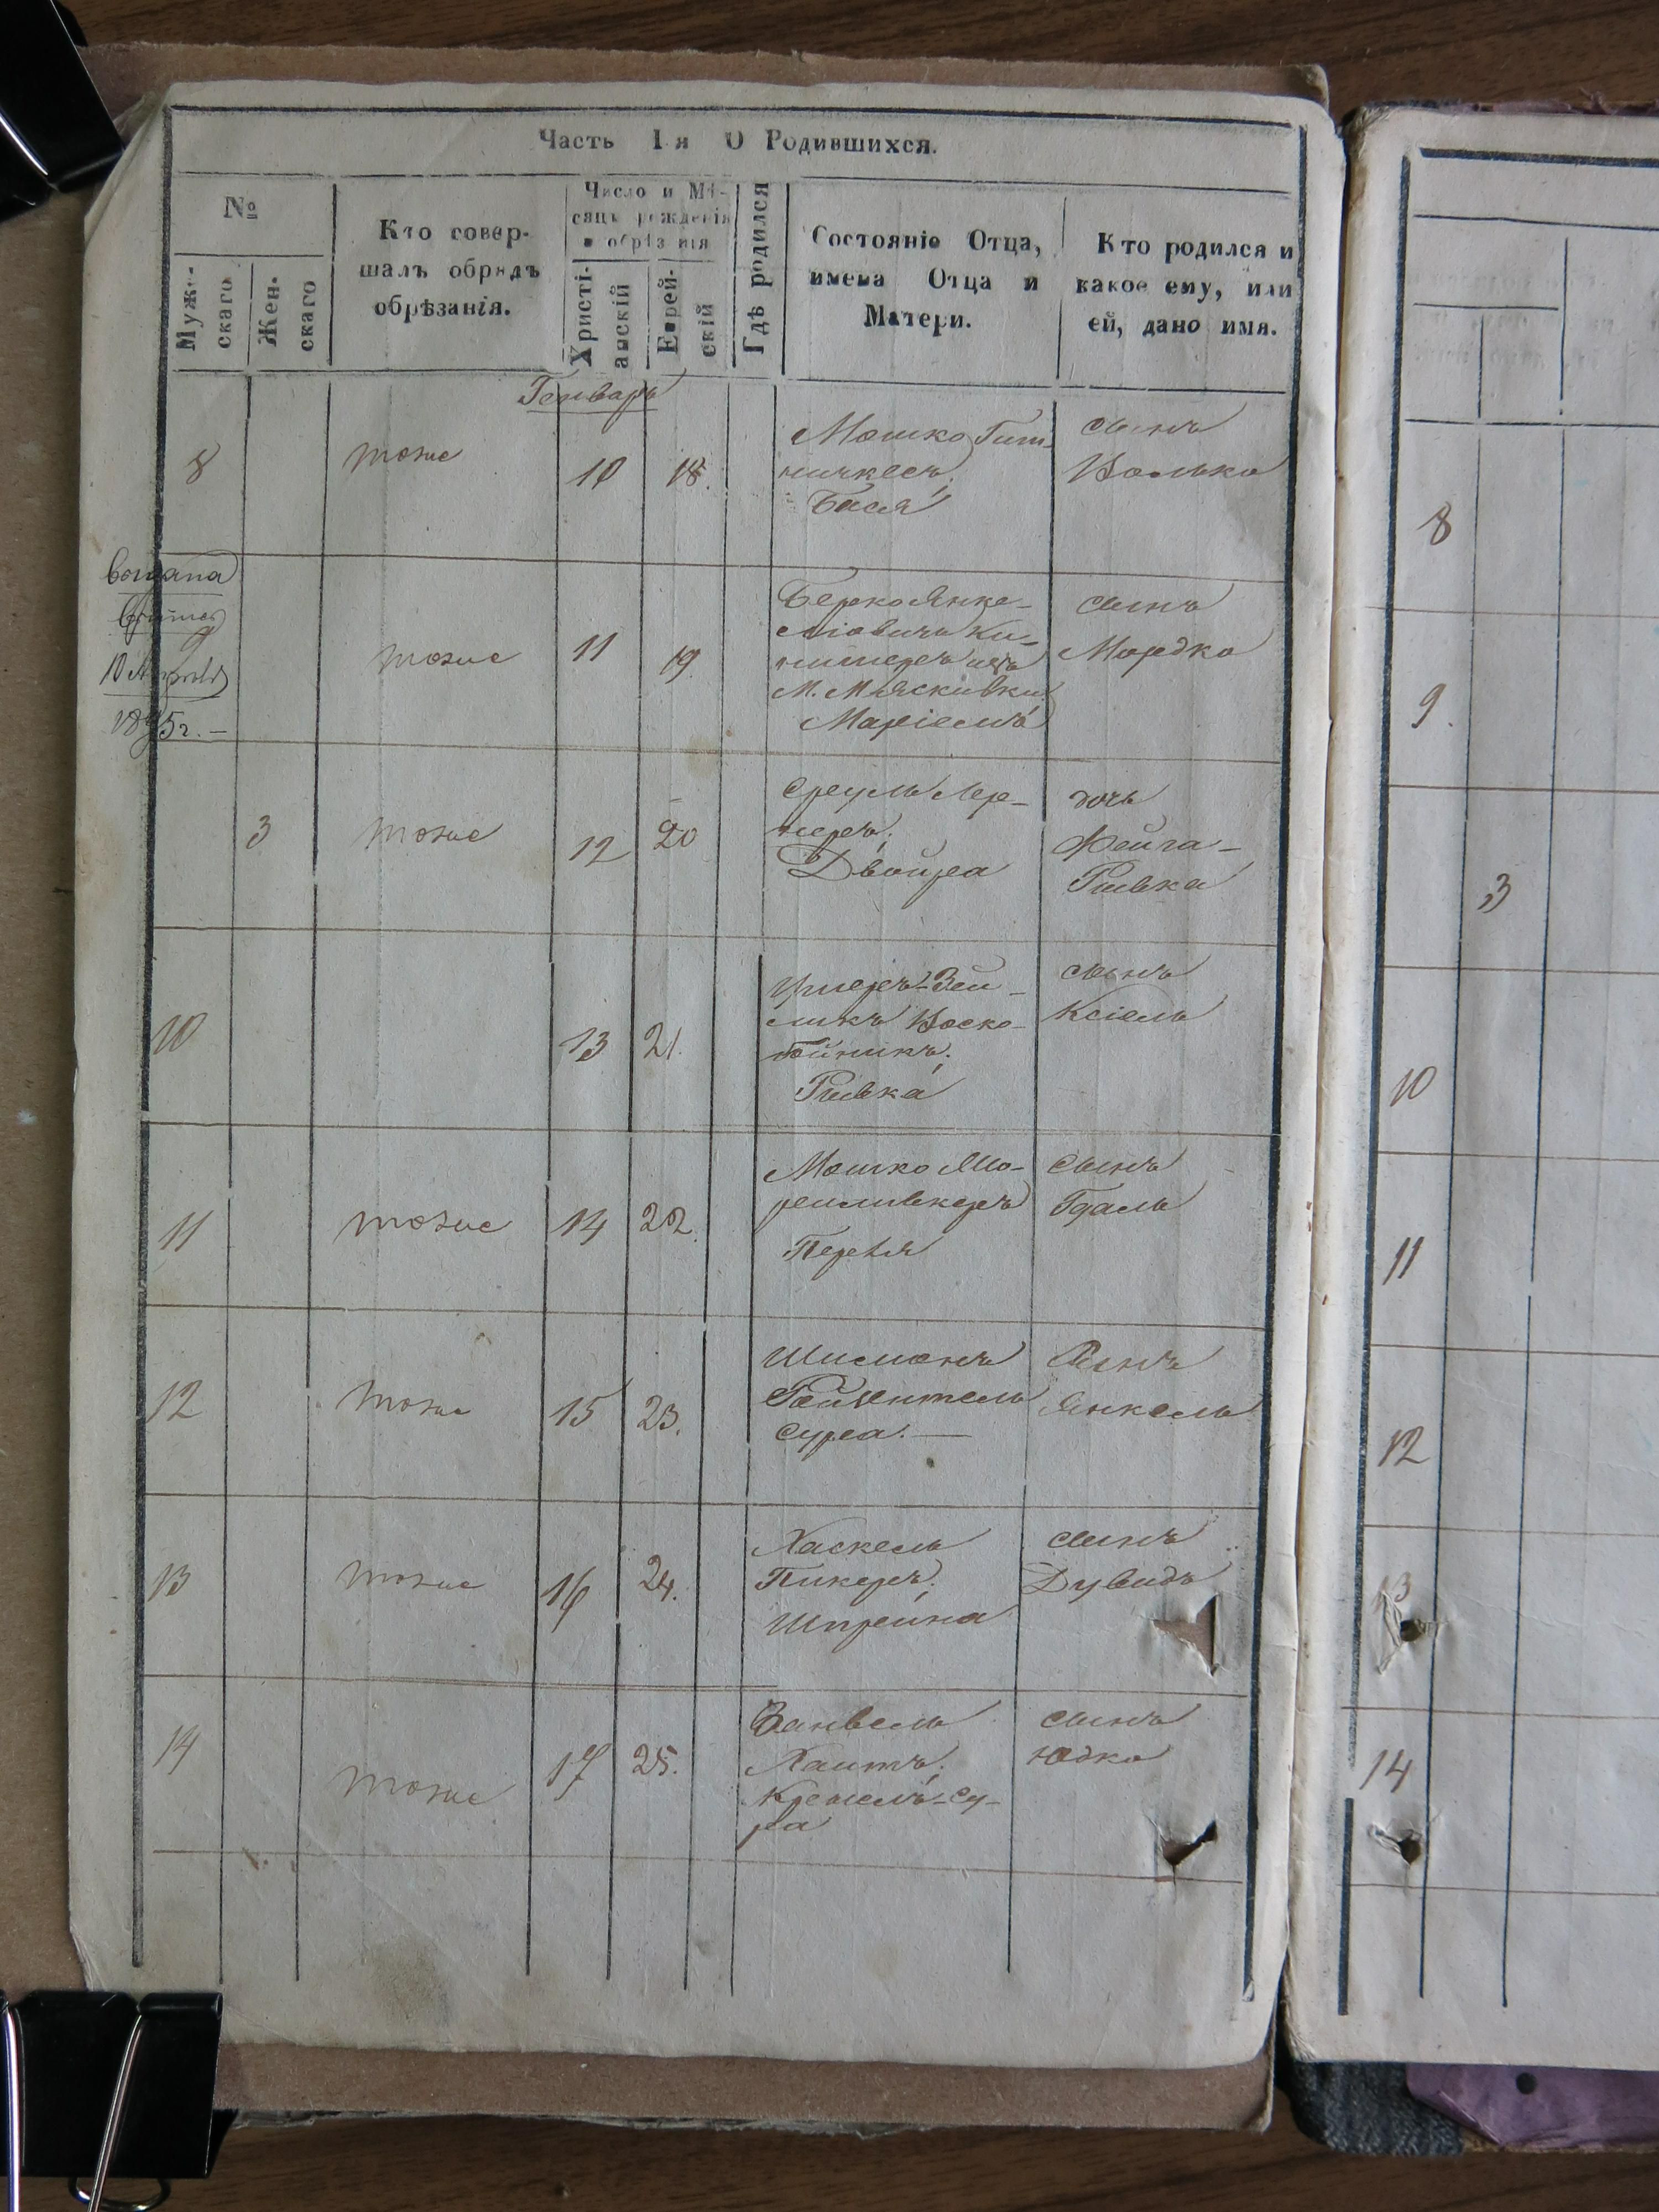 Часть I-я О Родившихся.
№
Мужескаго
Женскаго
Кто совершалъ обрядъ обрѣзанія.
Число и Мѣсяцъ рожденія и обрѣзанія
Христіанскій
Еврейскій
Гдѣ родился
Состояніе Отца, имена Отца и Матери.
Кто родился и какое ему, или ей, дано имя.
Генварь
8
тоже
10
18.
Мошко
Бася
сынъ
Волько
9
выдана
10
1895г.
тоже
11
19.
Берко Янке-
М. Мясковки
Маріемъ
сынъ
Мордко
3
тоже
12
20
Сруль Лер-
неръ;
Двойра
дочь
Фейга-
Ривка
10
13
21.
Зей-
ликъ Воско-
бойникъ;
Ривка
сынъ
Ксіель
11
тоже
14
22.
Мошко
Перля
сынъ
Гдаль
12
тоже
15
23.
Шимонъ
Сура.
Сынъ
Янкель
13
тоже
16
24.
Хаскель
Пикеръ;
Шпрейна
сынъ
Дувидъ
14
тоже
17
25.
Занвель
Хаитъ;
Крейслъ-Су-
ра
сынъ
Юдко
8
9.
3
10
11
12
13
14